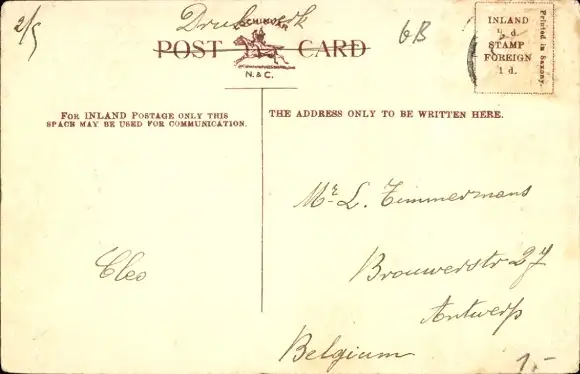 2/5
Drukwerk
POST CARD
N. & C.
6B
INLAND
½ d.
STAMP
FOREIGN
1 d.
Printed in Saxony.
FOR INLAND POSTAGE ONLY THIS
SPACE MAY BE USED FOR COMMUNICATION.
THE ADDRESS ONLY TO BE WRITTEN HERE.
Mr L. Timmermans
Cleo
Brouwerstr 27
Antwerp
Belgium
1,-